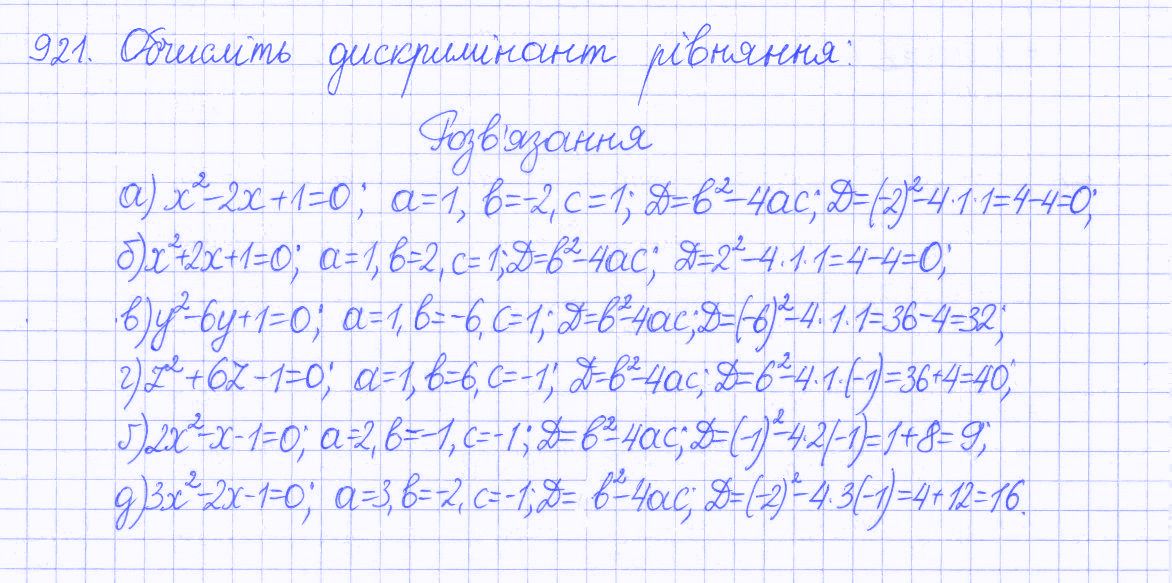 921. Обчисліть дискримінант рівняння:
Розв'язання
а) x²-2x+1=0; a=1, в=-2, c=1; Д=в²-4ac; Д=(-2)²-4·1·1=4-4=0;
б) x²+2x+1=0; a=1, в=2, c=1; Д=в²-4ac; Д=2²-4·1·1=4-4=0;
в) y²-6y+1=0; a=1, в=-6, c=1; Д=в²-4ac; Д=(-6)²-4·1·1=36-4=32;
г) z²+6z-1=0; a=1, в=6, c=-1; Д=в²-4ac; Д=6²-4·1·(-1)=36+4=40;
ґ) 2x²-x-1=0; a=2, в=-1, c=-1; Д=в²-4ac; Д=(-1)²-4·2(-1)=1+8=9;
д) 3x²-2x-1=0; a=3, в=-2, c=-1; Д= в²-4ac; Д=(-2)²-4·3(-1)=4+12=16.